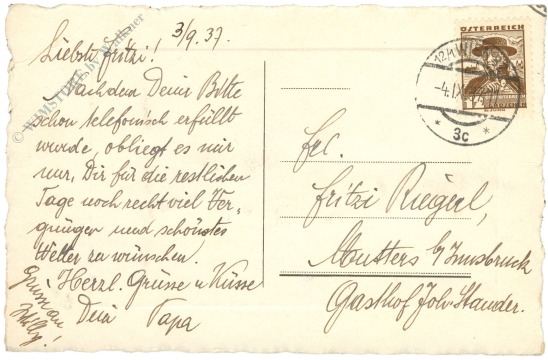 3/9.37.
Liebste Fritzi!
Nachdem Deine Bitte
schon telefonisch erfüllt
wurde, obliegt es mir
nur, Dir für die restlichen
Tage noch recht viel Ver-
gnügen und schönstes
Wetter zu wünschen.
Herzl. Grüsse u Küsse
Dein Papa
Gruss an
Willy!
ÖSTERREICH
12
3c
Frl.
Fritzi Riegerl,
Mutters b/Innsbruck
Gasthof Joh. Stauder.